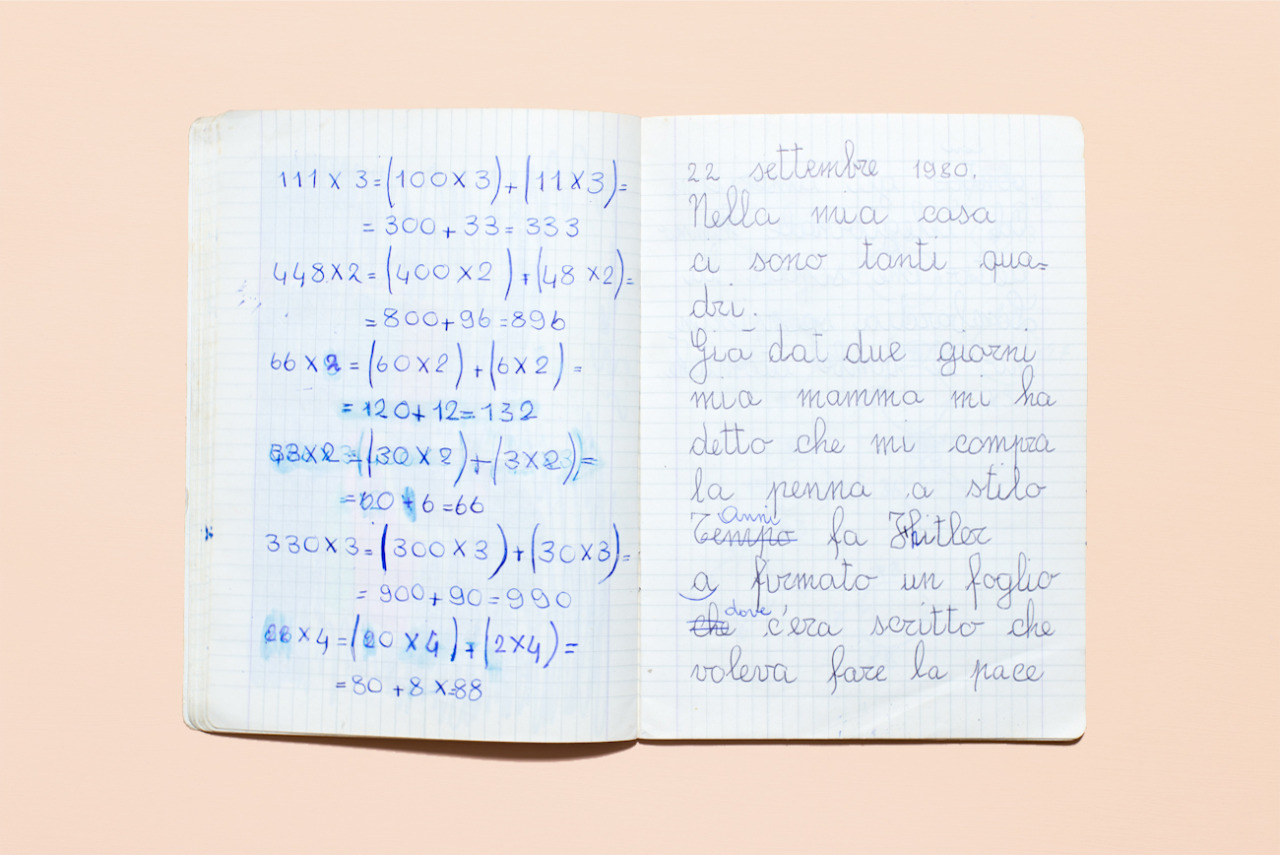 111 x 3 = (100 x 3) + (11 x 3) =
= 300 + 33 = 333
448 x 2 = (400 x 2) + (48 x 2) =
= 800 + 96 = 896
66 x 2 = (60 x 2) + (6 x 2) =
= 120 + 12 = 132
33 x 2 = (30 x 2) + (3 x 2) =
= 60 + 6 = 66
330 x 3 = (300 x 3) + (30 x 3) =
= 900 + 90 = 990
22 x 4 = (20 x 4) + (2 x 4) =
= 80 + 8 x = 88
22 settembre 1980.
Nella mia casa
ci sono tanti qua=
dri.
Già dat due giorni
mia mamma mi ha
detto che mi compra
la penna a stilo
Anni
Tempo fa Hitler
a firmato un foglio
dove
che c'era scritto che
voleva fare la pace